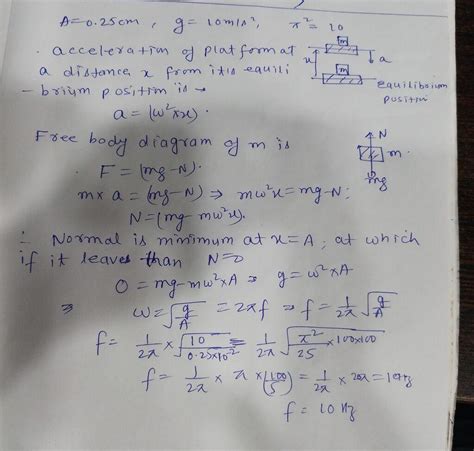 A=0.25cm, g=10m/s², π²=10
. acceleration of platform at
a distance x from it's equili
-brium position is →
a = (ω²×x).
m
x
a
m
equilibrium
position
Free body diagram of m is
F = (mg-N).
N
m.
mg
m×a = (mg-N) ⇒ mω²x = mg-N;
N = (mg-mω²x).
∴ Normal is minimum at x=A, at which
if it leaves than N=0
0 = mg-mω²×A ⇒ g=ω²×A
⇒ ω = √(g/A) = 2πf ⇒ f = 1/2π √(g/A)
f = 1/2π × √(10/0.25×10⁻²) = 1/2π √(π²/25 ×100×100)
f = 1/2π × π × (100/5) = 1/2π × 20π = 10Hz
f = 10 Hz